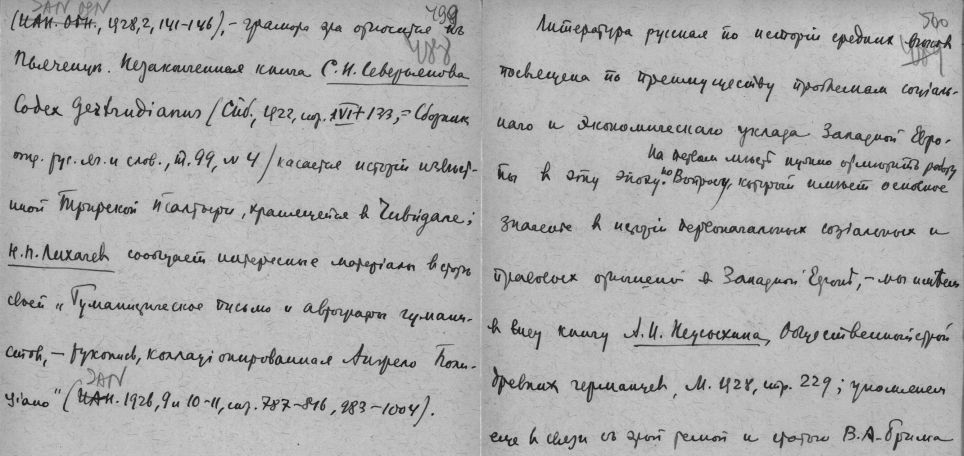 JAN OGN 499
(ИАН. ОГН., 1928, 2, 141-146), - грамота эта относится къ
488
Пьяченцѣ. Незаконченная книга С.Н. Северьянова
Codex Gertrudianus (Спб., 1922, стр. XVI+133, = Сборник
отд. рус. яз. и слов., т. 99, № 4) касается исторiи извѣст-
ной Трирской псалтыри, хранящейся в Чивидале;
Н.П. Лихачев сообщает интересные матерiалы в статьѣ
своей „Гуманистическое письмо и автографы гумани-
стов, - рукопись, коллацiонированная Анжело Поли-
JAN
цiано" (ИАН. 1926, 9 и 10-11, стр. 787-816, 983-1004).
500
Литература русская по исторiи средних вѣков
489
посвящена по преимуществу проблемам социаль-
наго и экономическаго уклада Западной Евро-
На первом мѣстѣ нужно отмѣтить работу
пы в эту эпоху. по вопросу, который имѣет основное
значенiе в исторiи первоначальных социальных и
правовых отношенiй в Западной Европѣ, - мы имѣем
в виду книгу А.И. Неусыхина, Общественный строй
древних германцев, М. 1928, стр. 229; упомянем
еще в связи съ этой темой и статью В.А. Брима